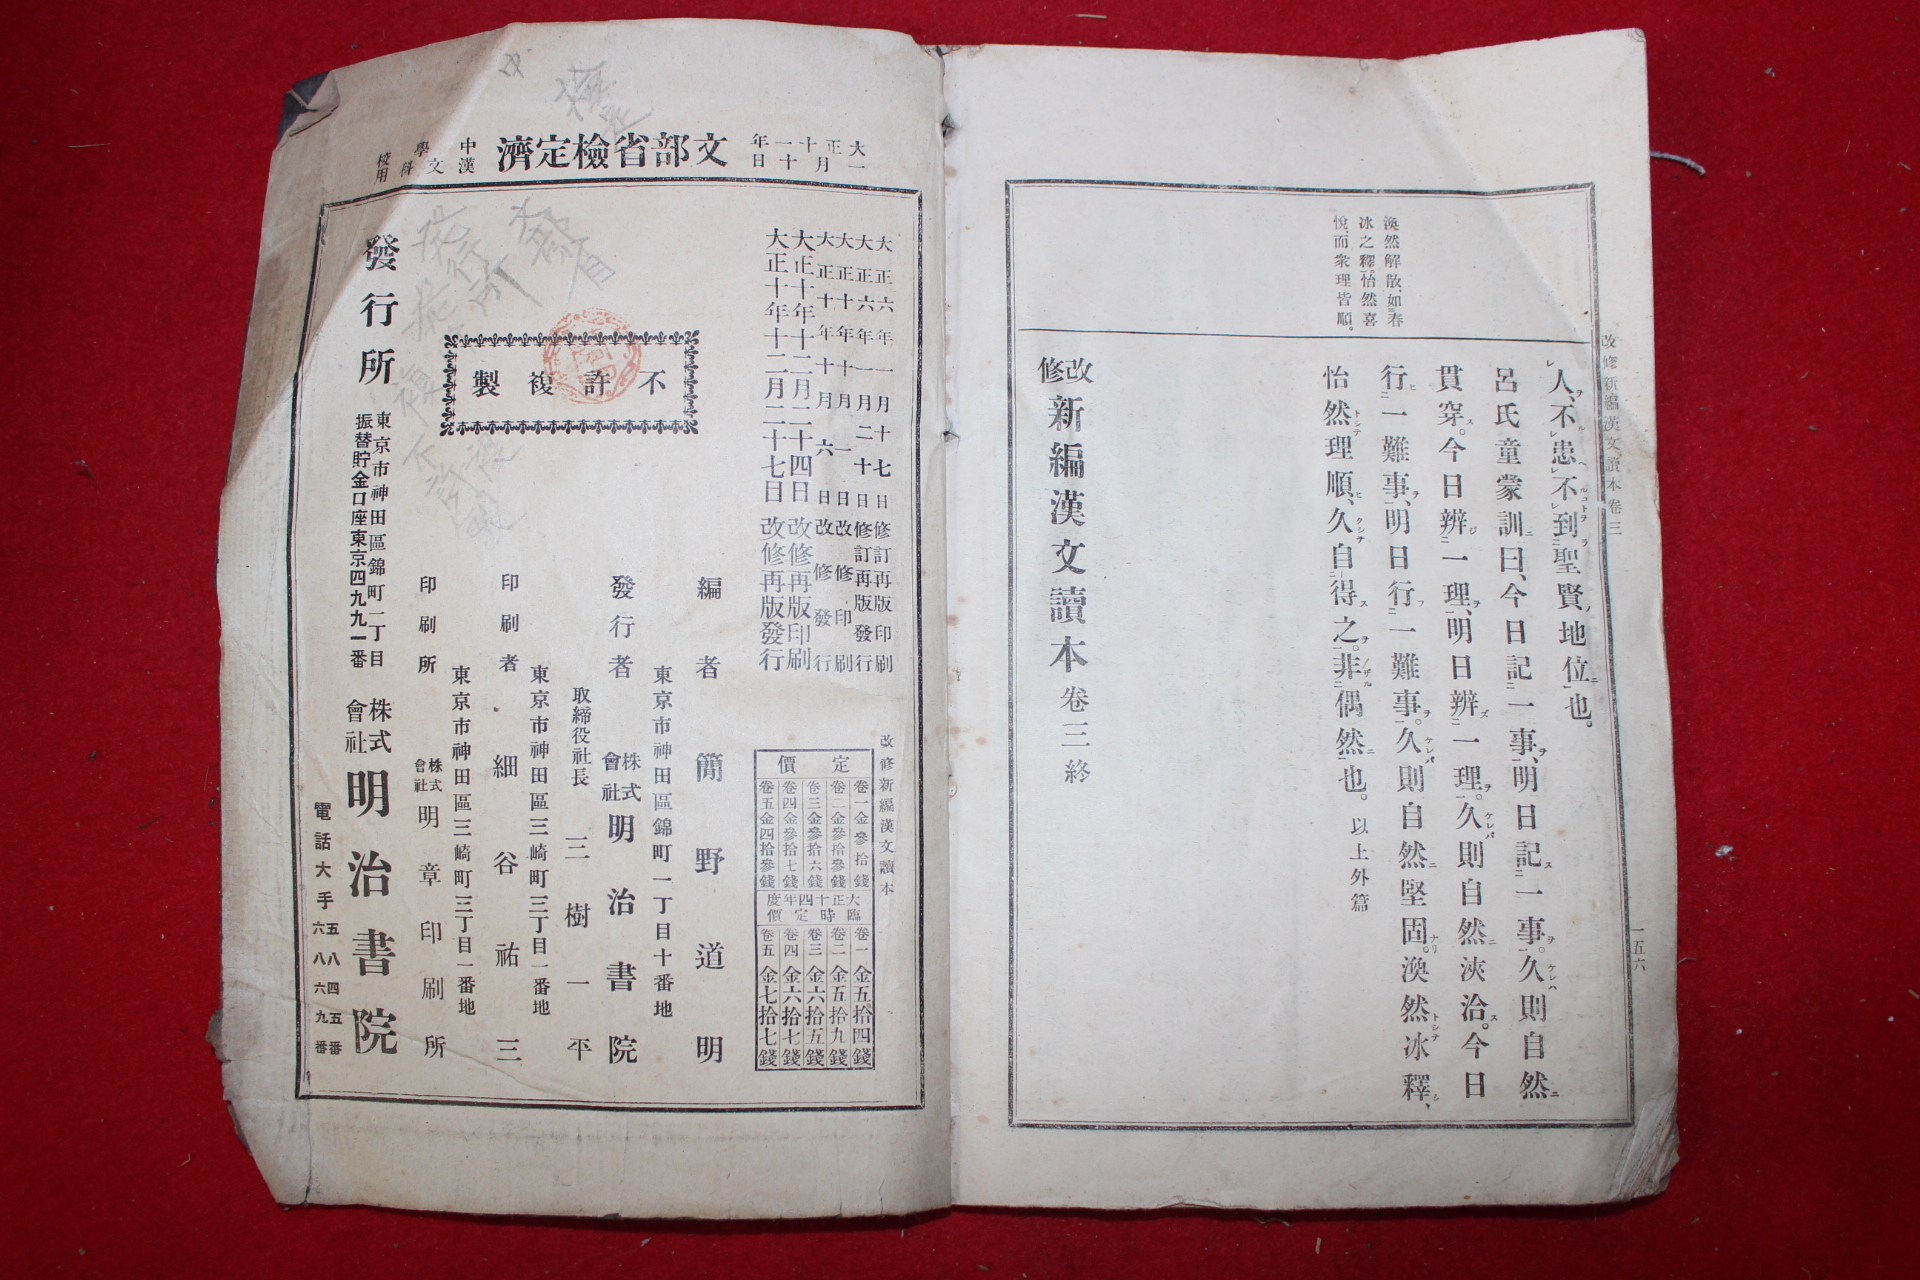 改修新編漢文讀本卷三
一五六
渙然解散、如春
冰之釋。怡然喜
悅、而衆理皆順。
人、不患不到聖賢地位也。
呂氏童蒙訓曰、今日記一事、明日記一事。久則自然
貫穿。今日辨一理、明日辨一理。久則自然浹洽。今日
行一難事、明日行一難事。久則自然堅固。渙然冰釋、
怡然理順、久自得之。非偶然也。以上外篇
改修新編漢文讀本卷三終
文部省檢定濟
中學校
漢文科用
大正六年一月十七日修訂再版印刷
大正六年一月二十日修訂再版發行
大正十年十月一日改修印刷
大正十年十月六日改修發行
大正十年十二月二十四日改修再版印刷
大正十年十二月二十七日改修再版發行
不許複製
改修新編漢文讀本
定價
卷一金參拾錢
卷二金參拾參錢
卷三金參拾六錢
卷四金參拾七錢
卷五金四拾參錢
大正十四年度
臨時定價
卷一金五拾四錢
卷二金五拾九錢
卷三金六拾五錢
卷四金六拾七錢
卷五金七拾七錢
編者 簡野道明
東京市神田區錦町一丁目十番地
發行者 株式會社明治書院
取締役社長 三樹一平
東京市神田區三崎町三丁目一番地
印刷者 細谷祐三
東京市神田區三崎町三丁目一番地
印刷所 株式會社明章印刷所
發行所
東京市神田區錦町一丁目
振替貯金口座東京四九九一番
株式會社明治書院
電話大手
五八四五番
六八六九番